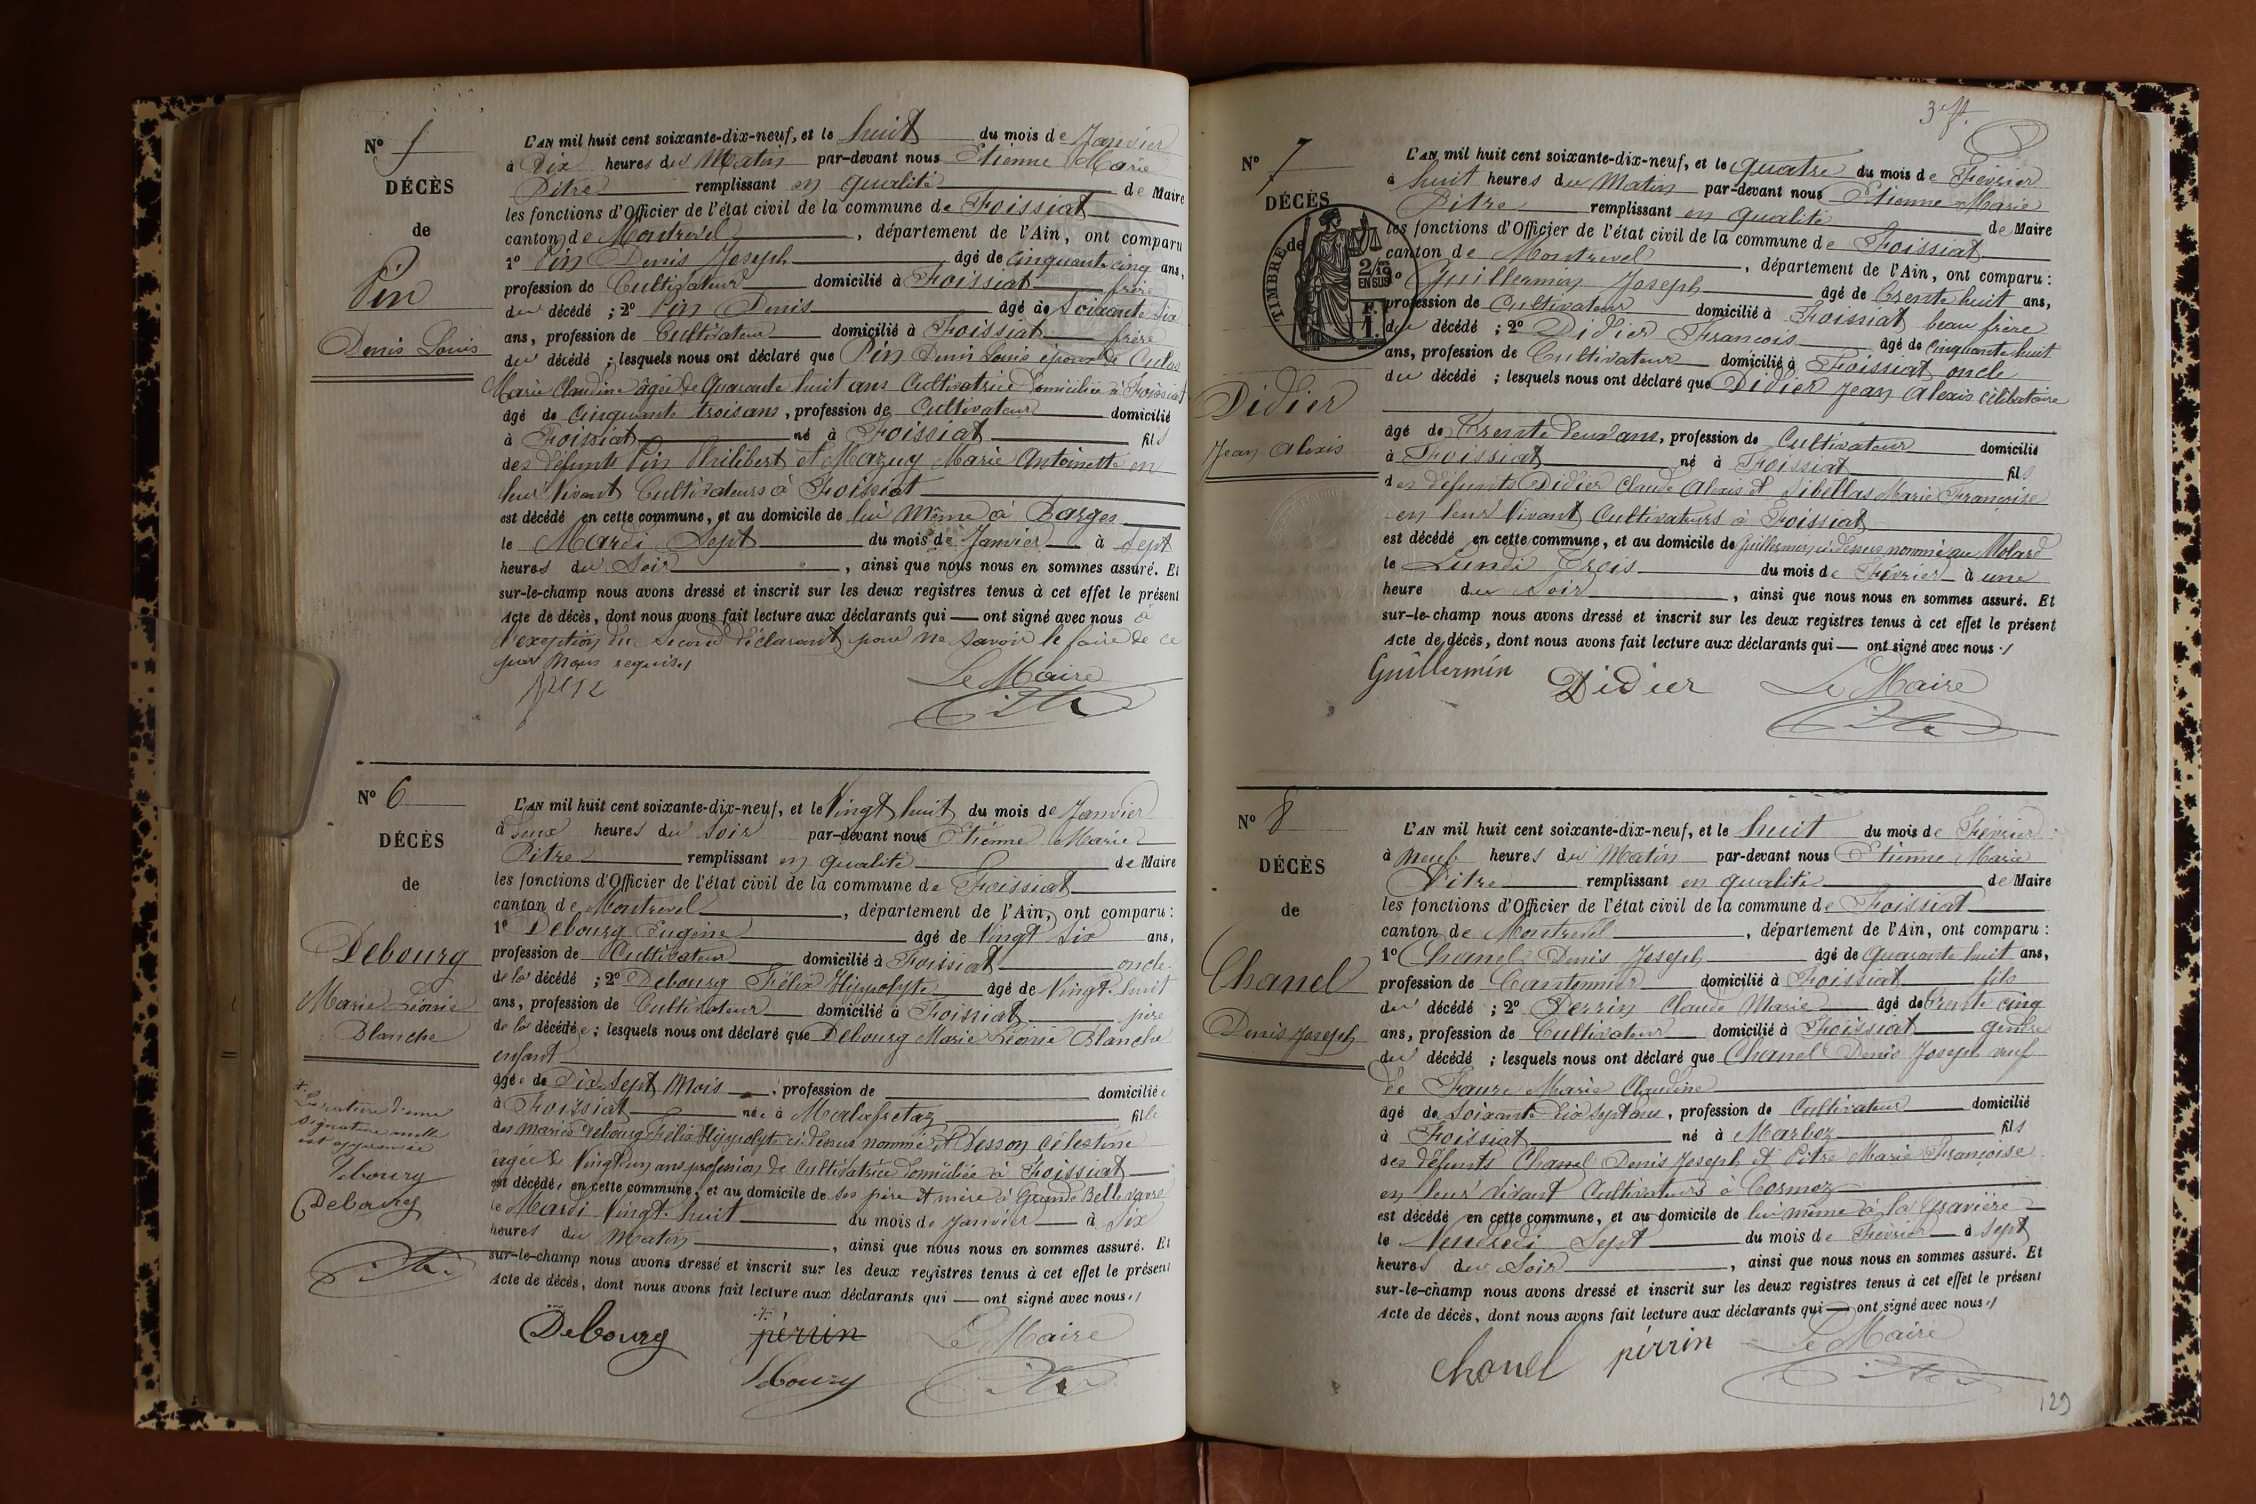 N° 5
DÉCÈS
de
Pin
Denis Louis
L'AN mil huit cent soixante-dix-neuf, et le huit du mois de Janvier
à Dix heures du Matin par-devant nous Etienne Marie
Pitre remplissant en qualité de Maire
les fonctions d'Officier de l'état civil de la commune de Foissiat
canton de Montrevel, département de l'Ain, ont comparu
1° Pin Denis Joseph âgé de Cinquante cinq ans,
profession de Cultivateur domicilié à Foissiat frère
du décédé ; 2° Pin Denis âgé de Soixante six
ans, profession de Cultivateur domicilié à Foissiat frère
du décédé ; lesquels nous ont déclaré que Pin Denis Louis époux de
Marie Claudine âgée de Quarante huit ans Cultivatrice domiciliée à Foissiat
âgé de Cinquante trois ans, profession de Cultivateur domicilié
à Foissiat né à Foissiat fils
des défunts Pin Philibert et Mazuy Marie Antoinette en
leur vivant Cultivateurs à Foissiat
est décédé en cette commune, et au domicile de lui même à Barges
le Mardi Sept du mois de Janvier à Sept
heures du Soir, ainsi que nous nous en sommes assuré. Et
sur-le-champ nous avons dressé et inscrit sur les deux registres tenus à cet effet le présent
Acte de décès, dont nous avons fait lecture aux déclarants qui ont signé avec nous à
l'exeption du second déclarant pour ne savoir le faire de ce
par nous requis
Le Maire
Pitre
N° 6
DÉCÈS
de
Debourg
Marie Léonie
Blanche
+
La rature d'une
signature nulle
est approuvée
Debourg
Debourg
Pitre
L'AN mil huit cent soixante-dix-neuf, et le Vingt huit du mois de Janvier
à Deux heures du Soir par-devant nous Etienne Marie
Pitre remplissant en qualité de Maire
les fonctions d'Officier de l'état civil de la commune de Foissiat
canton de Montrevel, département de l'Ain, ont comparu :
1° Debourg Eugène âgé de Vingt Six ans,
profession de Cultivateur domicilié à Foissiat oncle
de la décédé ; 2° Debourg Félix Hippolyte âgé de Vingt huit
ans, profession de Cultivateur domicilié à Foissiat père
de la décédée ; lesquels nous ont déclaré que Debourg Marie Léonie Blanche
enfant
âgée de Dix Sept Mois, profession de domiciliée
à Foissiat née à Malafretaz fille
des mariés Debourg Félix Hippolyte ci dessus nommé et Tesson Célestine
âgée de Vingt un ans profession de Cultivatrice domiciliée à Foissiat
est décédée en cette commune, et au domicile de ses père et mère à Grande Bellevavre
le Mardi Vingt huit du mois de Janvier à Six
heures du Matin, ainsi que nous nous en sommes assuré. Et
sur-le-champ nous avons dressé et inscrit sur les deux registres tenus à cet effet le présent
Acte de décès, dont nous avons fait lecture aux déclarants qui ont signé avec nous
Debourg
+
pérrin
Le Maire
Debourg
Pitre
3e ft.
N° 7
DÉCÈS
de
TIMBRE
2/10 EN SUS
F. 1.
Didier
Jean Alexis
L'AN mil huit cent soixante-dix-neuf, et le quatre du mois de Février
à huit heures du Matin par-devant nous Etienne Marie
Pitre remplissant en qualité de Maire
les fonctions d'Officier de l'état civil de la commune de Foissiat
canton de Montrevel, département de l'Ain, ont comparu :
1° Guillermin Joseph âgé de Trente huit ans,
profession de Cultivateur domicilié à Foissiat beau frère
du décédé ; 2° Didier François âgé de Cinquante huit
ans, profession de Cultivateur domicilié à Foissiat oncle
du décédé ; lesquels nous ont déclaré que Didier Jean Alexis célibataire
âgé de Trente deux ans, profession de Cultivateur domicilié
à Foissiat né à Foissiat fils
des défunts Didier Claude Alexis et Sibellas Marie Françoise
en leur vivant Cultivateurs à Foissiat
est décédé en cette commune, et au domicile de Guillermin ci dessus nommé au Molard
le Lundi Trois du mois de Février à une
heure du soir, ainsi que nous nous en sommes assuré. Et
sur-le-champ nous avons dressé et inscrit sur les deux registres tenus à cet effet le présent
Acte de décès, dont nous avons fait lecture aux déclarants qui ont signé avec nous
Guillermin Didier Le Maire
Pitre
N° 8
DÉCÈS
de
Chanel
Denis Joseph
L'AN mil huit cent soixante-dix-neuf, et le huit du mois de Février
à Neuf heures du Matin par-devant nous Etienne Marie
Pitre remplissant en qualité de Maire
les fonctions d'Officier de l'état civil de la commune de Foissiat
canton de Montrevel, département de l'Ain, ont comparu :
1° Chanel Denis Joseph âgé de Quarante huit ans,
profession de Cantonnier domicilié à Foissiat fils
du décédé ; 2° Perrin Claude Marie âgé de Trente cinq
ans, profession de Cultivateur domicilié à Foissiat gendre
du décédé ; lesquels nous ont déclaré que Chanel Denis Joseph veuf
de Faure Marie Claudine
âgé de Soixante dix sept ans, profession de Cultivateur domicilié
à Foissiat né à Marboz fils
des défunts Chanel Denis Joseph et Pitre Marie Françoise
en leur vivant Cultivateurs à Cormoz
est décédé en cette commune, et au domicile de lui même à la Gravière
le Vendredi Sept du mois de Février à Sept
heures du Soir, ainsi que nous nous en sommes assuré. Et
sur-le-champ nous avons dressé et inscrit sur les deux registres tenus à cet effet le présent
Acte de décès, dont nous avons fait lecture aux déclarants qui ont signé avec nous
chanel pérrin Le Maire
Pitre
129